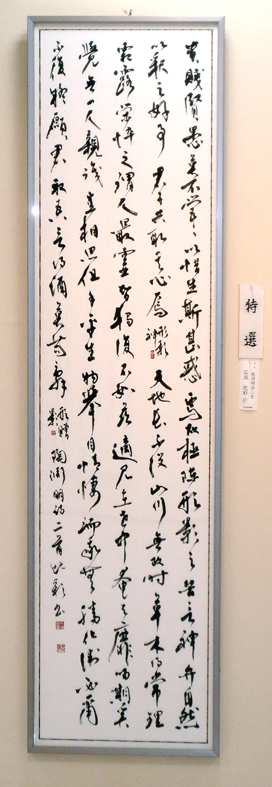 貴賤賢愚莫不営々以惜生斯甚惑焉故極陳形影之苦言神弁自然
以釈之好事君子共取其心焉 天地長不没山川無改時草木得常理
霜露栄悴之謂人最霊智独復不如茲適見在世中奄去靡帰期奚
覚無一人親識豈相思但余平生物挙目情悽洏我無騰化術必爾
不復疑願君取吾言得酒莫苟辞 形贈影 陶淵明詩二首 書
特選